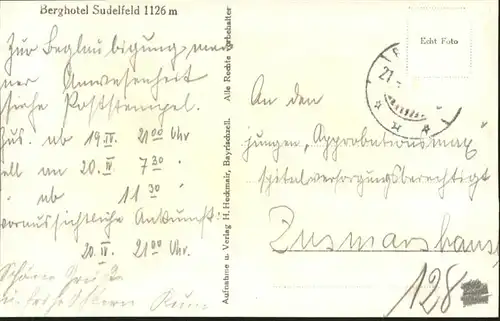 Berghotel Sudelfeld 1126 m
Zur Beglaubigung mei
ner Anwesenheit
siehe Poststempel.
Zus. ab 19.IV. 21 00 Uhr
ell an 20. IV 7 30 "
" ab 11 30 "
voraussichtliche Ankunft:
20. IV. 21 00 Uhr.
Schöne Grüße
Aufnahme u. Verlag H. Heckmair, Bayrischzell. Alle Rechte vorbehalten
Echt Foto
21.
An den
jungen, "Approbationsmax"
spitalversorgungsberechtigt
Zusmarshausen
128